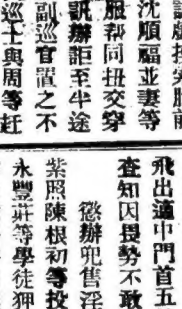 前
沈順福並妻等
服帮同扭交穿
訊辦詎至半途
副巡官置之不
巡士與周等赶
飛出中門首五
查知因勢不敢
懲辦兜售淫
紫照陳根初等投
永豐莊等學徒狎